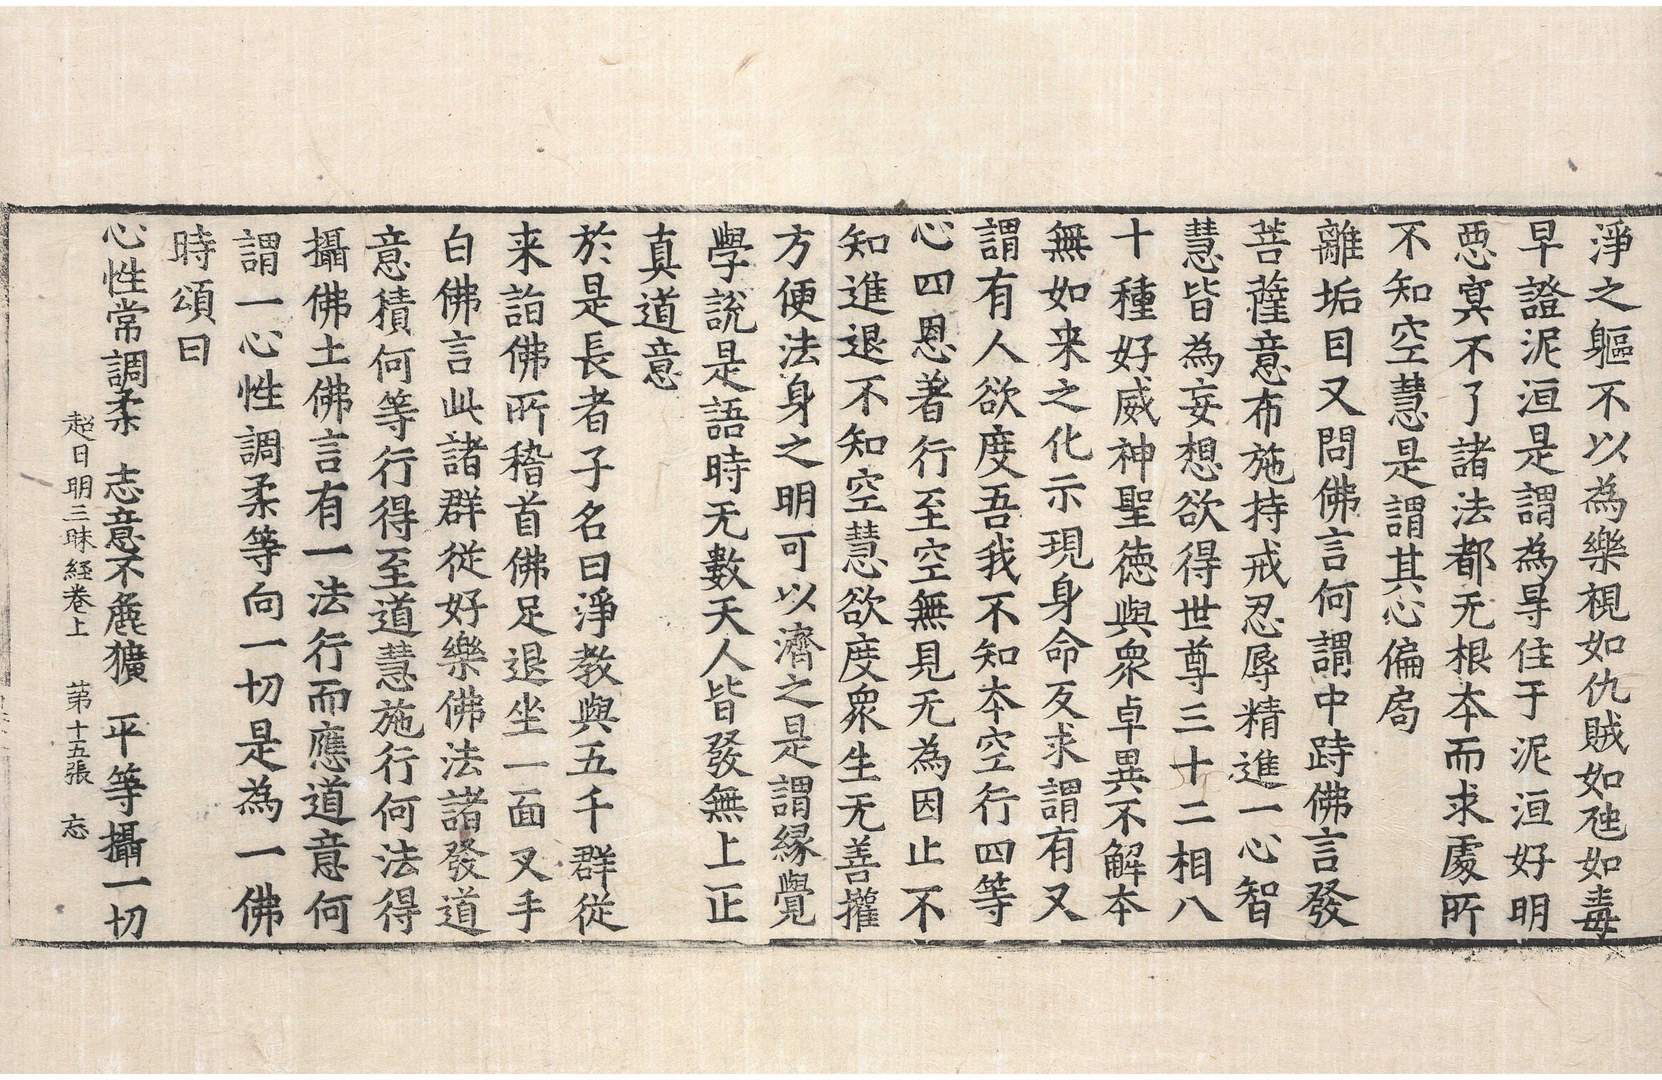 淨之軀不以為樂視如仇賊如虵如毒
早證泥洹是謂為㝵住于泥洹好明
惡冥不了諸法都无根本而求處所
不知空慧是謂其心偏局
離垢目又問佛言何謂中跱佛言發
菩薩意布施持戒忍辱精進一心智
慧皆為妄想欲得世尊三十二相八
十種好威神聖德與衆卓異不解本
無如来之化示現身命反求謂有又
謂有人欲度吾我不知本空行四等
心四恩著行至空無見无為因止不
知進退不知空慧欲度衆生无善權
方便法身之明可以濟之是謂緣覺
學說是語時无數天人皆發無上正
真道意
於是長者子名曰淨教與五千群從
来詣佛所稽首佛足退坐一面叉手
白佛言此諸群從好樂佛法諸發道
意積何等行得至道慧施行何法得
攝佛土佛言有一法行而應道意何
謂一心性調柔等向一切是為一佛
時頌曰
心性常調柔 志意不麁獷 平等攝一切
超日明三昧経卷上 第十五張 忘